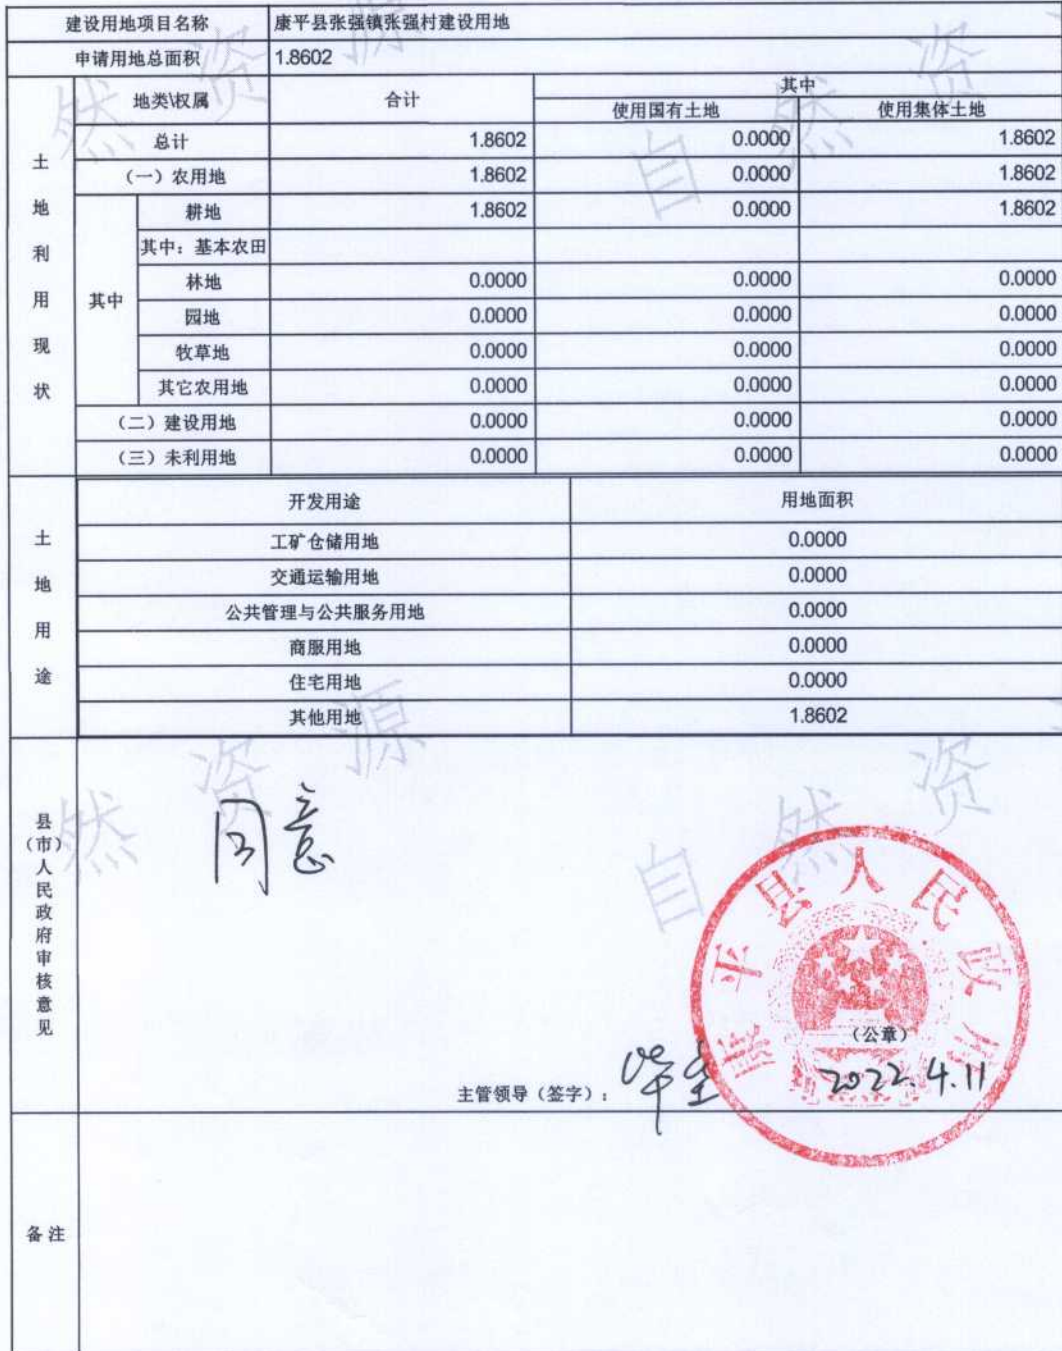 建设用地项目名称 康平县张强镇张强村建设用地
申请用地总面积 1.8602
土地利用现状
地类\权属 合计 其中
使用国有土地 使用集体土地
总计 1.8602 0.0000 1.8602
（一）农用地 1.8602 0.0000 1.8602
其中
耕地 1.8602 0.0000 1.8602
其中：基本农田
林地 0.0000 0.0000 0.0000
园地 0.0000 0.0000 0.0000
牧草地 0.0000 0.0000 0.0000
其它农用地 0.0000 0.0000 0.0000
（二）建设用地 0.0000 0.0000 0.0000
（三）未利用地 0.0000 0.0000 0.0000
土地用途
开发用途 用地面积
工矿仓储用地 0.0000
交通运输用地 0.0000
公共管理与公共服务用地 0.0000
商服用地 0.0000
住宅用地 0.0000
其他用地 1.8602
县（市）人民政府审核意见
同意
康平县人民政府
（公章）
主管领导（签字）：
2022.4.11
备注
自然资源